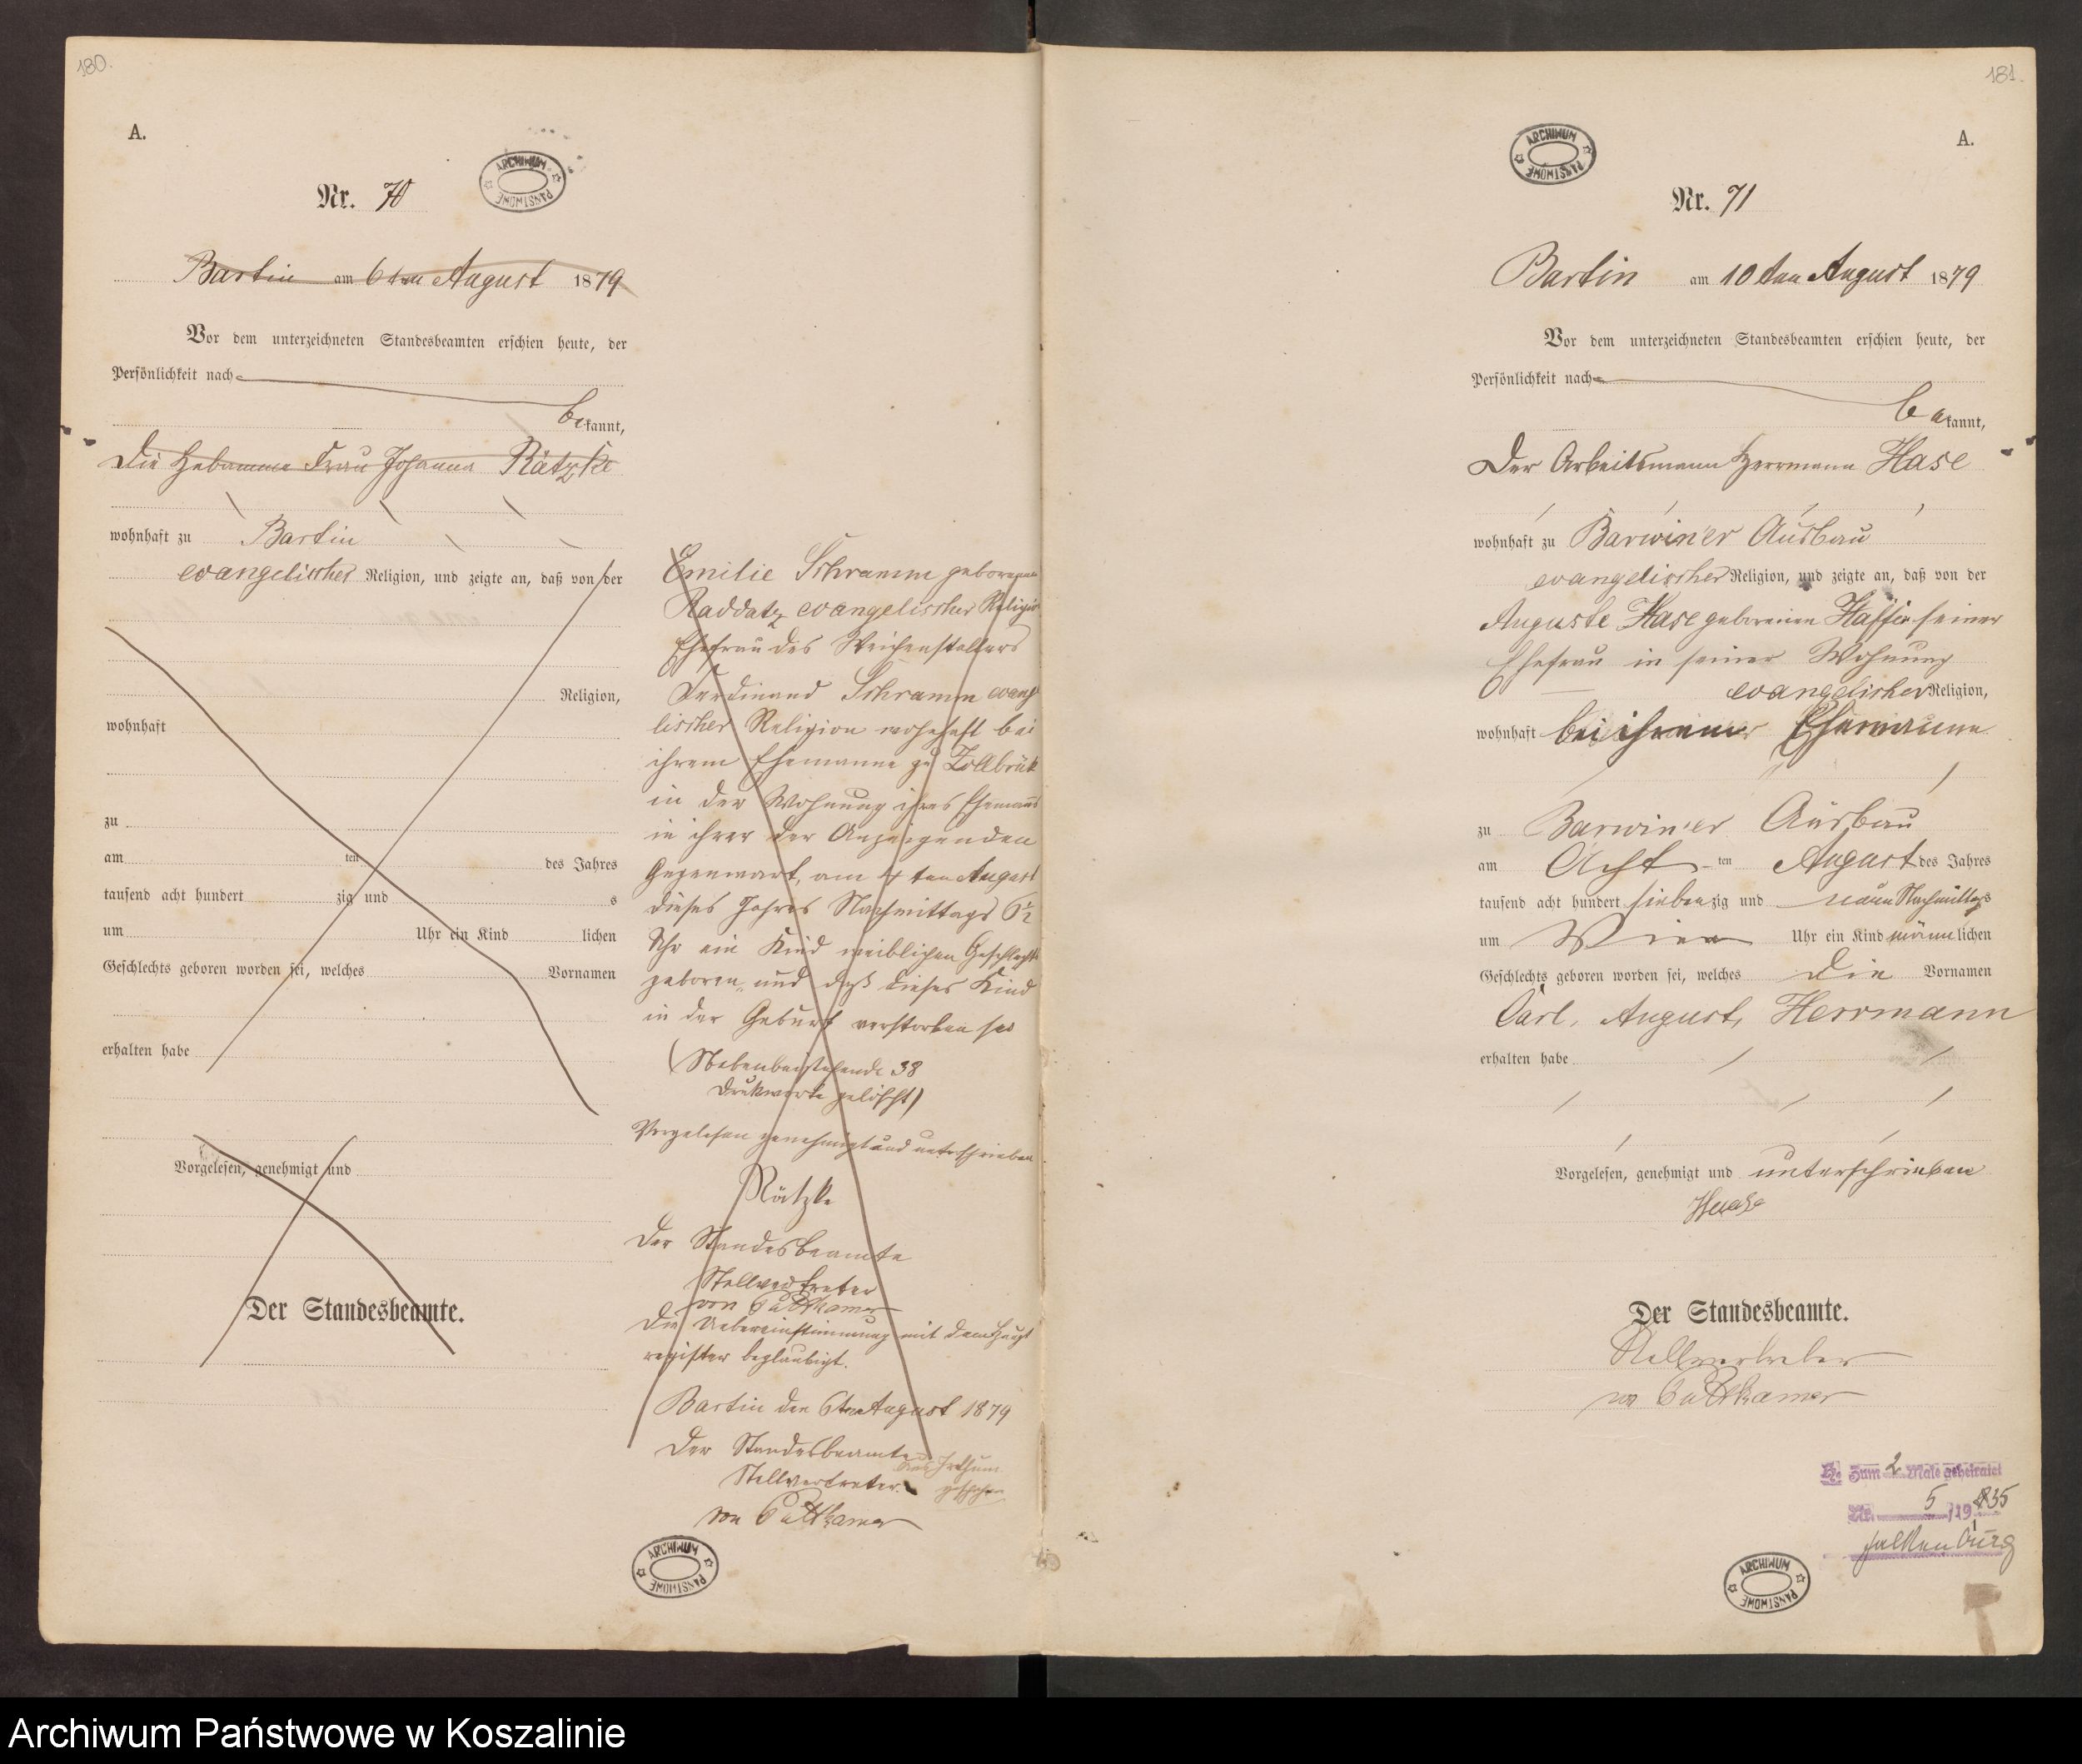 180.
A.
ARCHIWUM PAŃSTWOWE
Nr. 70
Bartin am 6ten August 1879
Vor dem unterzeichneten Standesbeamten erschien heute, der
Persönlichkeit nach
bekannt,
Die Hebamme Frau Johanna Rätzke
wohnhaft zu Bartin
evangelischer Religion, und zeigte an, daß von der
Religion,
wohnhaft
zu
am ten des Jahres
tausend acht hundert zig und s
um Uhr ein Kind lichen
Geschlechts geboren worden sei, welches Vornamen
erhalten habe
Vorgelesen, genehmigt und
Der Standesbeamte.
Emilie Schramm geborenen
Raddatz evangelischer Religion
Ehefrau des Weichenstellers
Ferdinand Schramm evange
lischer Religion wohnhaft bei
ihrem Ehemanne zu Zollbrük
in der Wohnung ihres Ehemanns
in ihrer der Anzeigenden
Gegenwart, am 4 ten August
dieses Jahres Nachmittags 6½
Uhr ein Kind weiblichen Geschlechts
geboren und daß dieses Kind
in der Geburt verstorben sei
(Nebenbeistehende 38
Drukworte gelöscht)
Vorgelesen genehmigt und unterschrieben
Rätzke
Der Standesbeamte
Stellvertreter
von Puttkamer
Die Uebereinstimmung mit dem Haupt
register beglaubigt.
Bartin den 6ten August 1879
Der Standesbeamte
Stellvertreter.
von Puttkamer
Irthum
geschehen
ARCHIWUM PAŃSTWOWE
181.
A.
ARCHIWUM PAŃSTWOWE
Nr. 71
Bartin am 10 ten August 1879
Vor dem unterzeichneten Standesbeamten erschien heute, der
Persönlichkeit nach
bekannt,
Der Arbeitsmann Herrmann Hase
wohnhaft zu Barwiner Ausbau
evangelischer Religion, und zeigte an, daß von der
Auguste Hase geborenen seiner
Ehefrau in seiner Wohnung
evangelischer Religion,
wohnhaft bei ihrem Ehemanne
zu Barwiner Ausbau
am Acht ten August des Jahres
tausend acht hundert siebenzig und neun Nachmittags
um Vier Uhr ein Kind männlichen
Geschlechts geboren worden sei, welches die Vornamen
Carl, August, Herrmann
erhalten habe
Vorgelesen, genehmigt und unterschrieben
Der Standesbeamte.
Stellvertreter
von Puttkamer
zum 2 Male geheiratet
Nr. 5 /1935
Falkenburg
ARCHIWUM PAŃSTWOWE
Archiwum Państwowe w Koszalinie